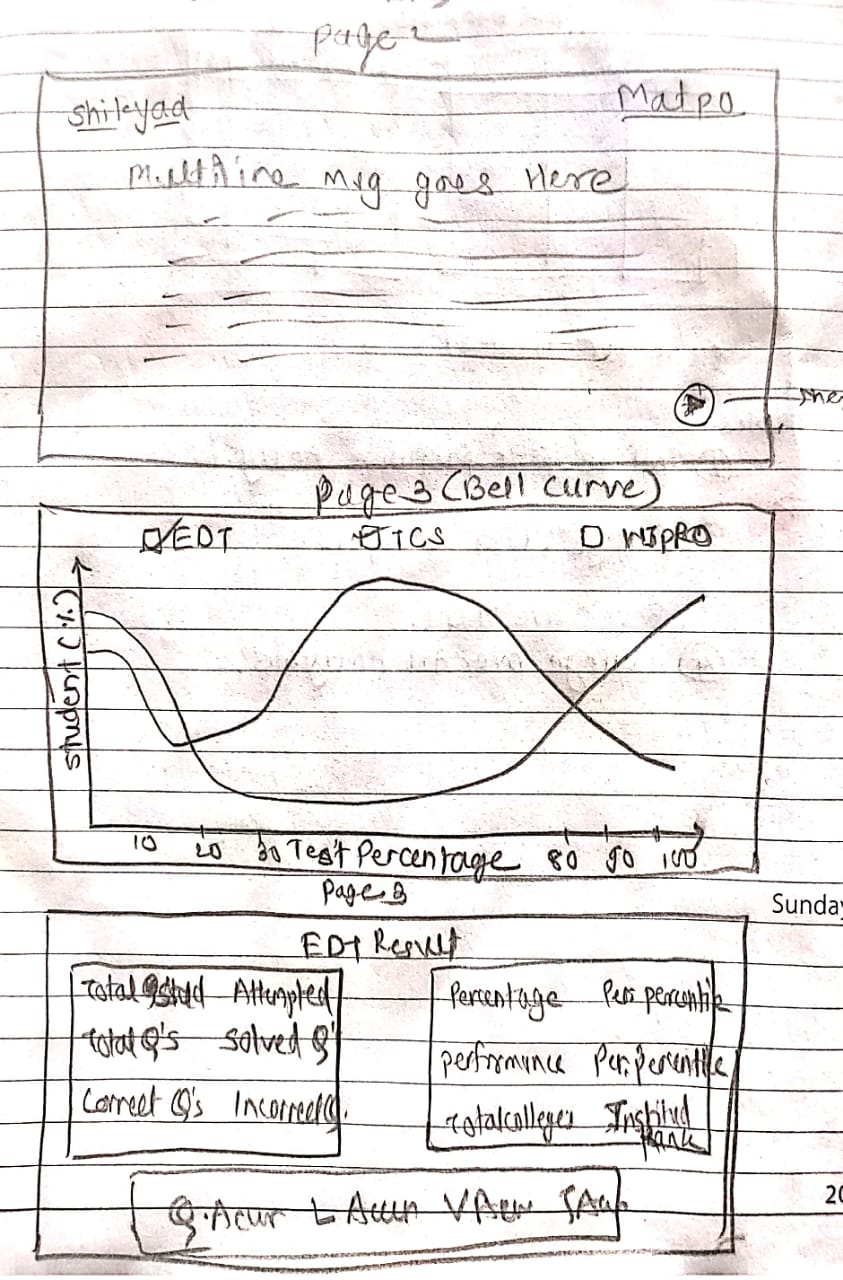 Page 2
Shikyad Matpo
Multiline Msg goes Here
Page 3 (Bell Curve)
EDT TCS WIPRO
Student (%)
10 20 30 Test Percentage 80 90 100
Page 3
Sunday
EDT Result
Total Attempted
Total Q's Solved Q'
Correct Q's Incorrect Q.
Percentage Per percentile
performance Per. percentile
Total colleges Institud
Rank
Q.Acur L Accur V Acur
20